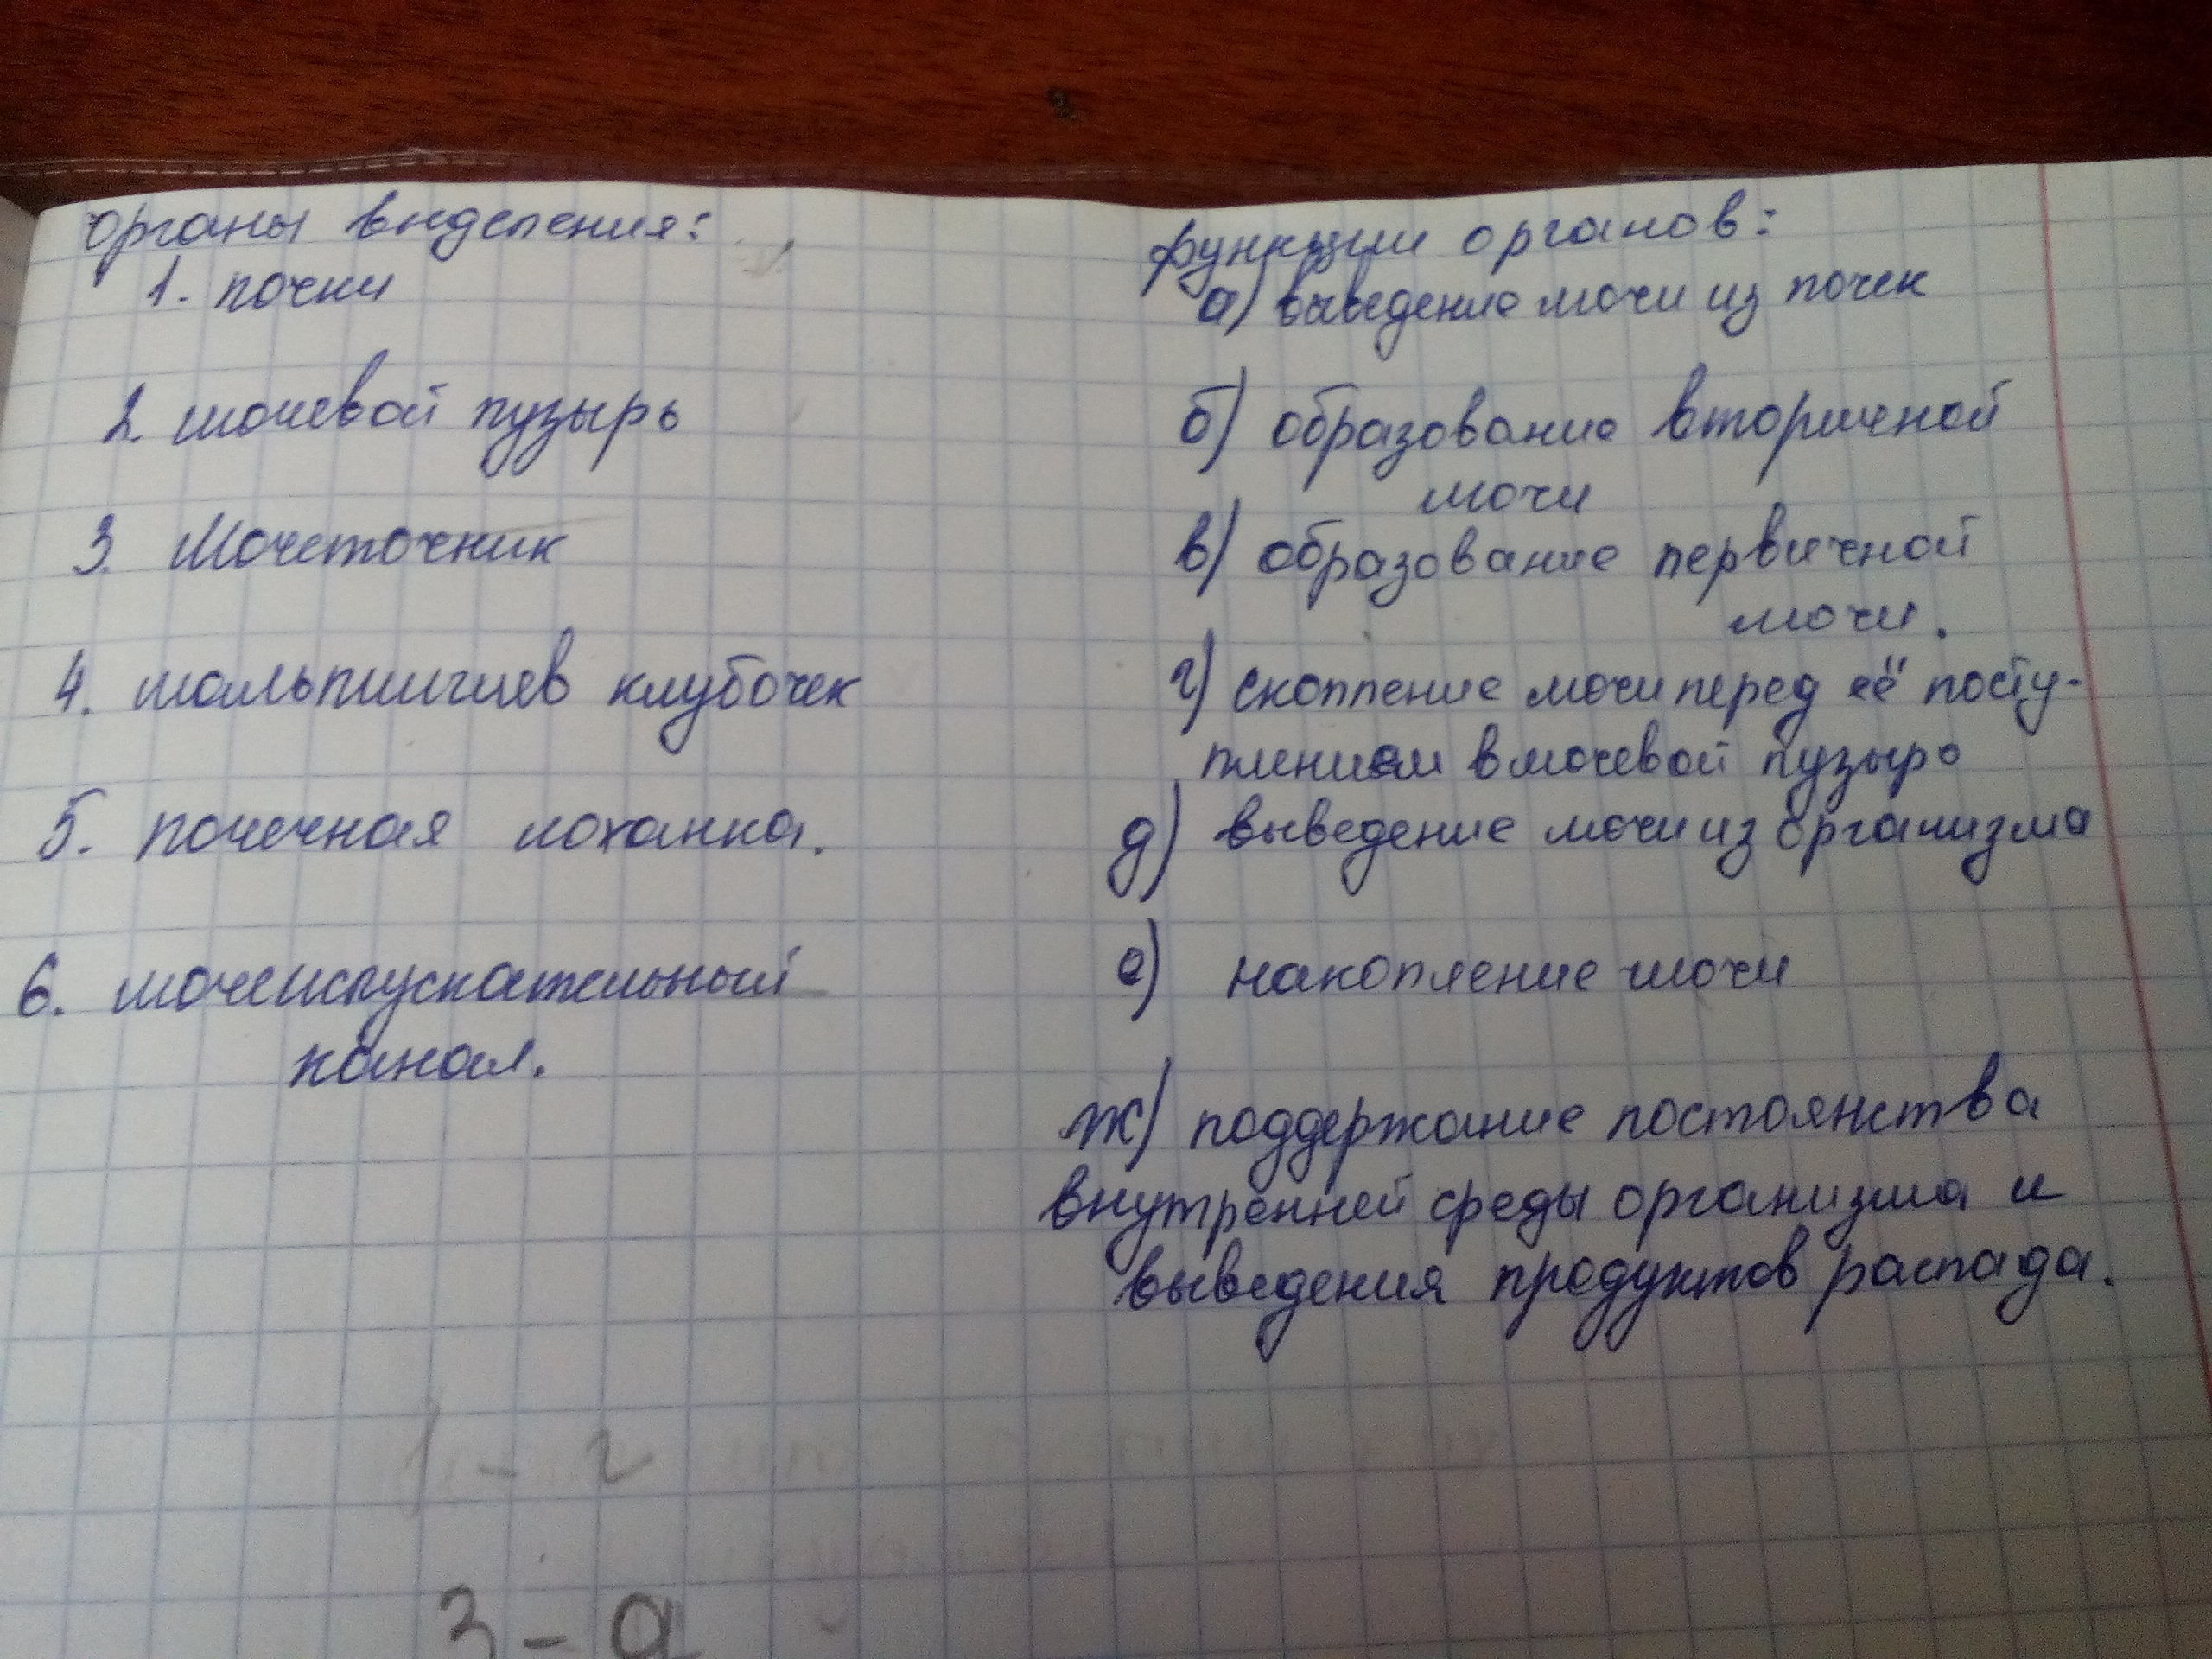 органы выделения:
1. почки
2. мочевой пузырь
3. Мочеточник
4. мальпигиев клубочек
5. почечная лоханка.
6. мочеиспускательный
канал.
функции органов:
а) выведение мочи из почек
б) образование вторичной
мочи
в) образование первичной
мочи.
г) скопление мочи перед её посту-
плением в мочевой пузырь
д) выведение мочи из организма
е) накопление мочи
ж) поддержание постоянства
внутренней среды организма и
выведения продуктов распада.
1 - г
3 - а